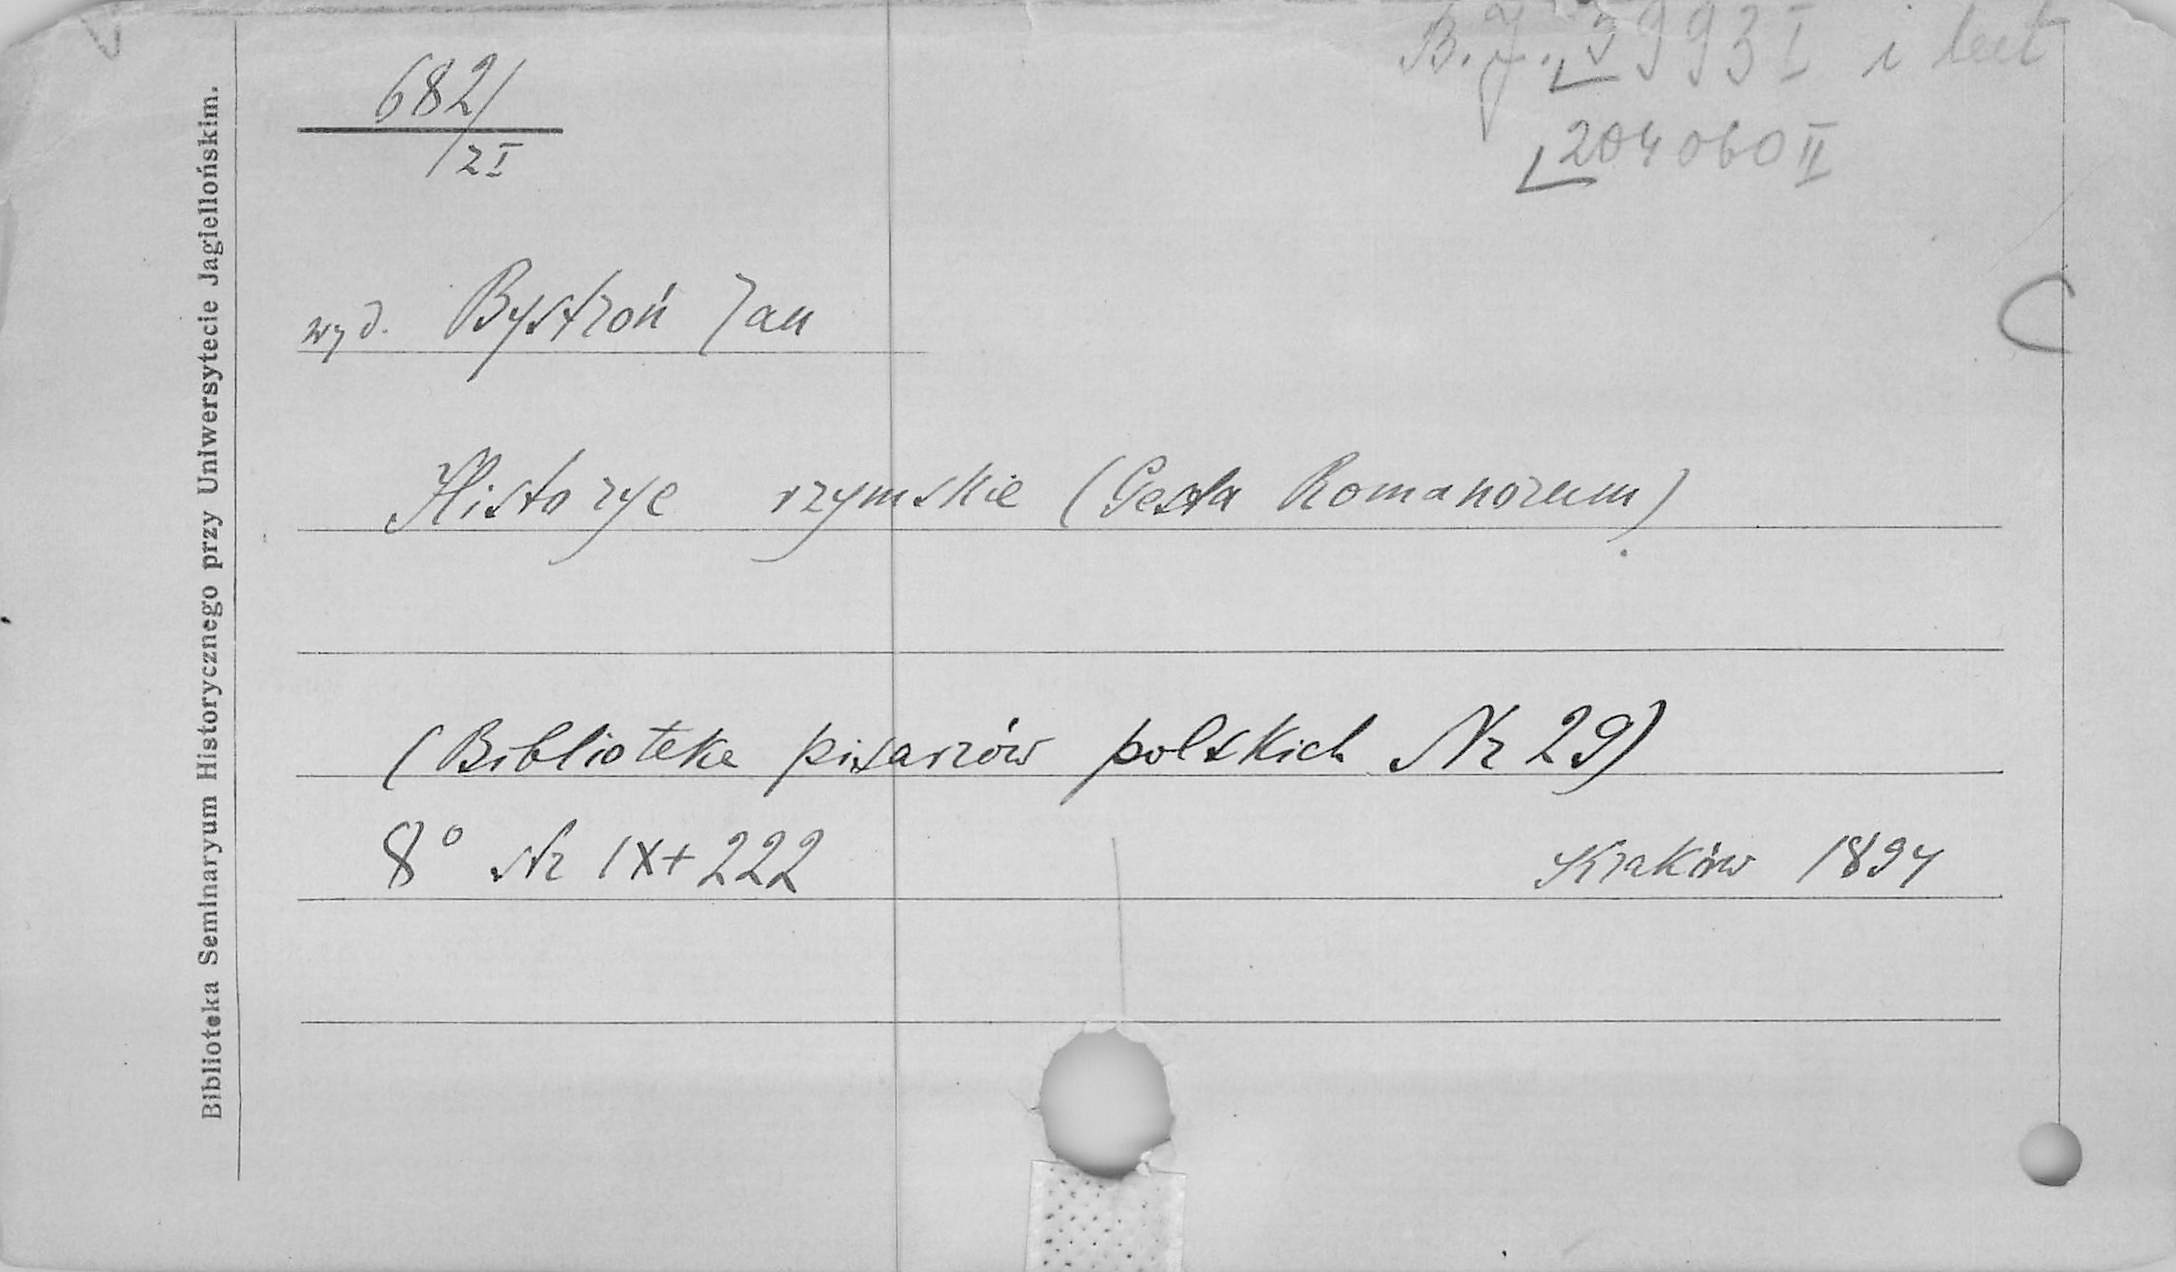 682/
/2 I
B.J. 3993 I i lect
204060 II
wyd. Bystroń Jan
Historye rzymskie (Gesta Romanorum)
(Biblioteka pisarzów polskich Nr 29)
8° str IX+222 Kraków 1894
Biblioteka Seminaryum Historycznego przy Uniwersytecie Jagiellońskim.